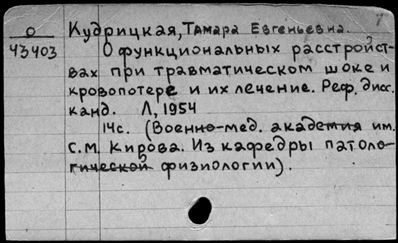 О Кудрицкая, Тамара Евгеньевна.
43403 О функциональных расстройст-
вах при травматическом шоке и
кровопотере и их лечение. Реф. дисс.
канд. Л, 1954
14с. (Военно-мед. академия им.
С.М. Кирова. Из кафедры патоло-
гической физиологии).